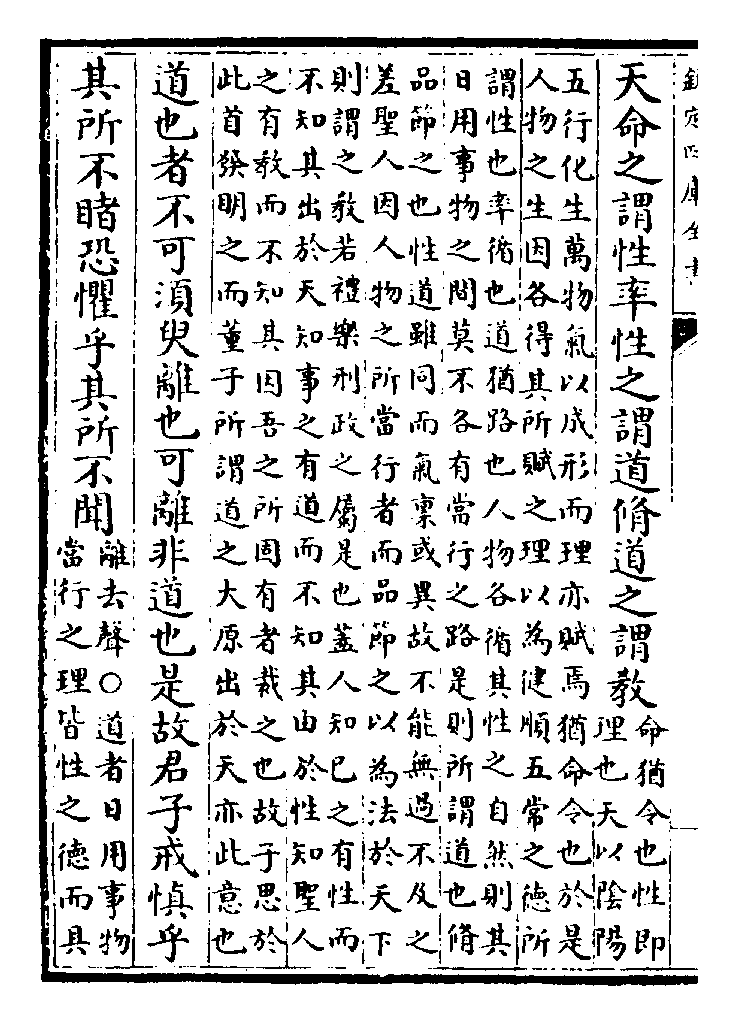 欽定四庫全書
天命之謂性率性之謂道脩道之謂教
命猶令也性即
理也天以陰陽
五行化生萬物氣以成形而理亦賦焉猶命令也於是
人物之生因各得其所賦之理以為健順五常之德所
謂性也率循也道猶路也人物各循其性之自然則其
日用事物之間莫不各有當行之路是則所謂道也脩
品節之也性道雖同而氣稟或異故不能無過不及之
差聖人因人物之所當行者而品節之以為法於天下
則謂之教若禮樂刑政之屬是也葢人知已之有性而
不知其出於天知事之有道而不知其由於性知聖人
之有教而不知其因吾之所固有者裁之也故子思於
此首發明之而董子所謂道之大原出於天亦此意也
道也者不可須臾離也可離非道也是故君子戒慎乎
其所不睹恐懼乎其所不聞
離去聲○道者日用事物
當行之理皆性之德而具